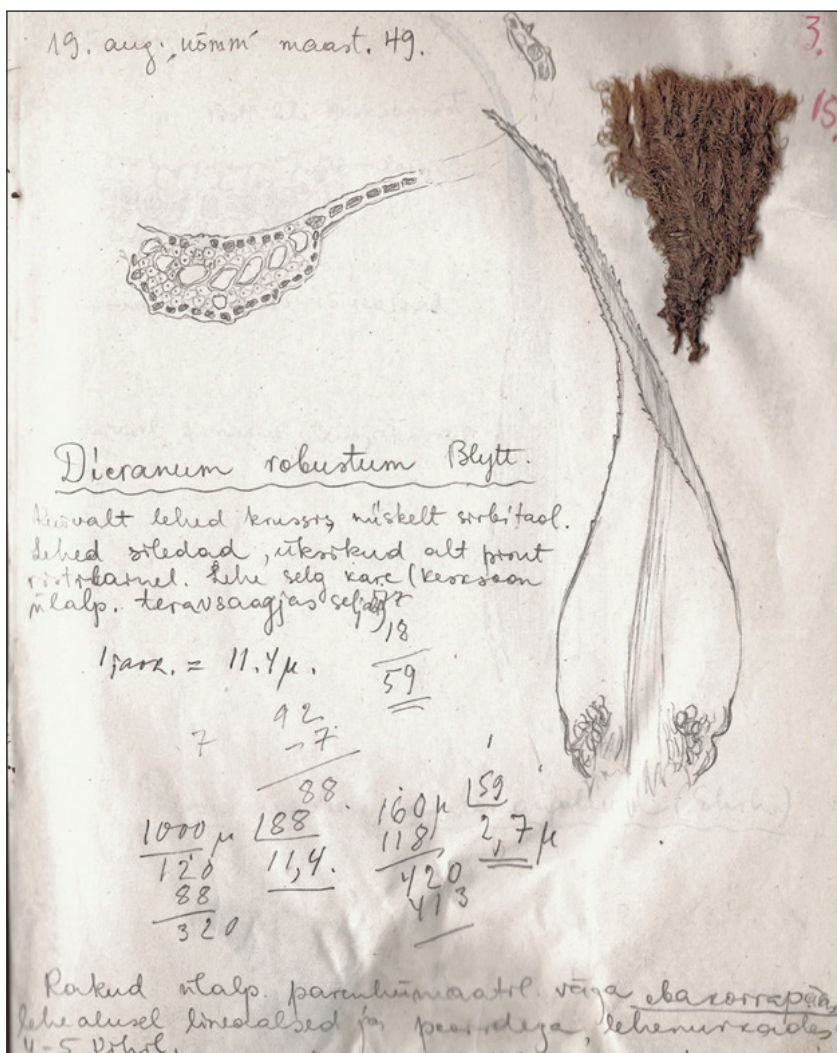 19. aug. nõmm maast. 49.
3.
15.
Dicranum robustum Blytt.
lehed krussis, niiskelt sirbitaol.
Lehed siledad, üksikud alt
Lehe selg kare (kesksoon
ülalp. teravsaagjas
18
59
= 11,4 µ.
92
7 -7
88
1000 µ 88 160 µ 59
120 11,4. 118 2,7 µ
88 420
320 413
Rakud ülalp. parenhümaatil. väga ebakorrapär.
lehealusel lineaalsed ja pooridega, lehenurkades
4-5 kihil.